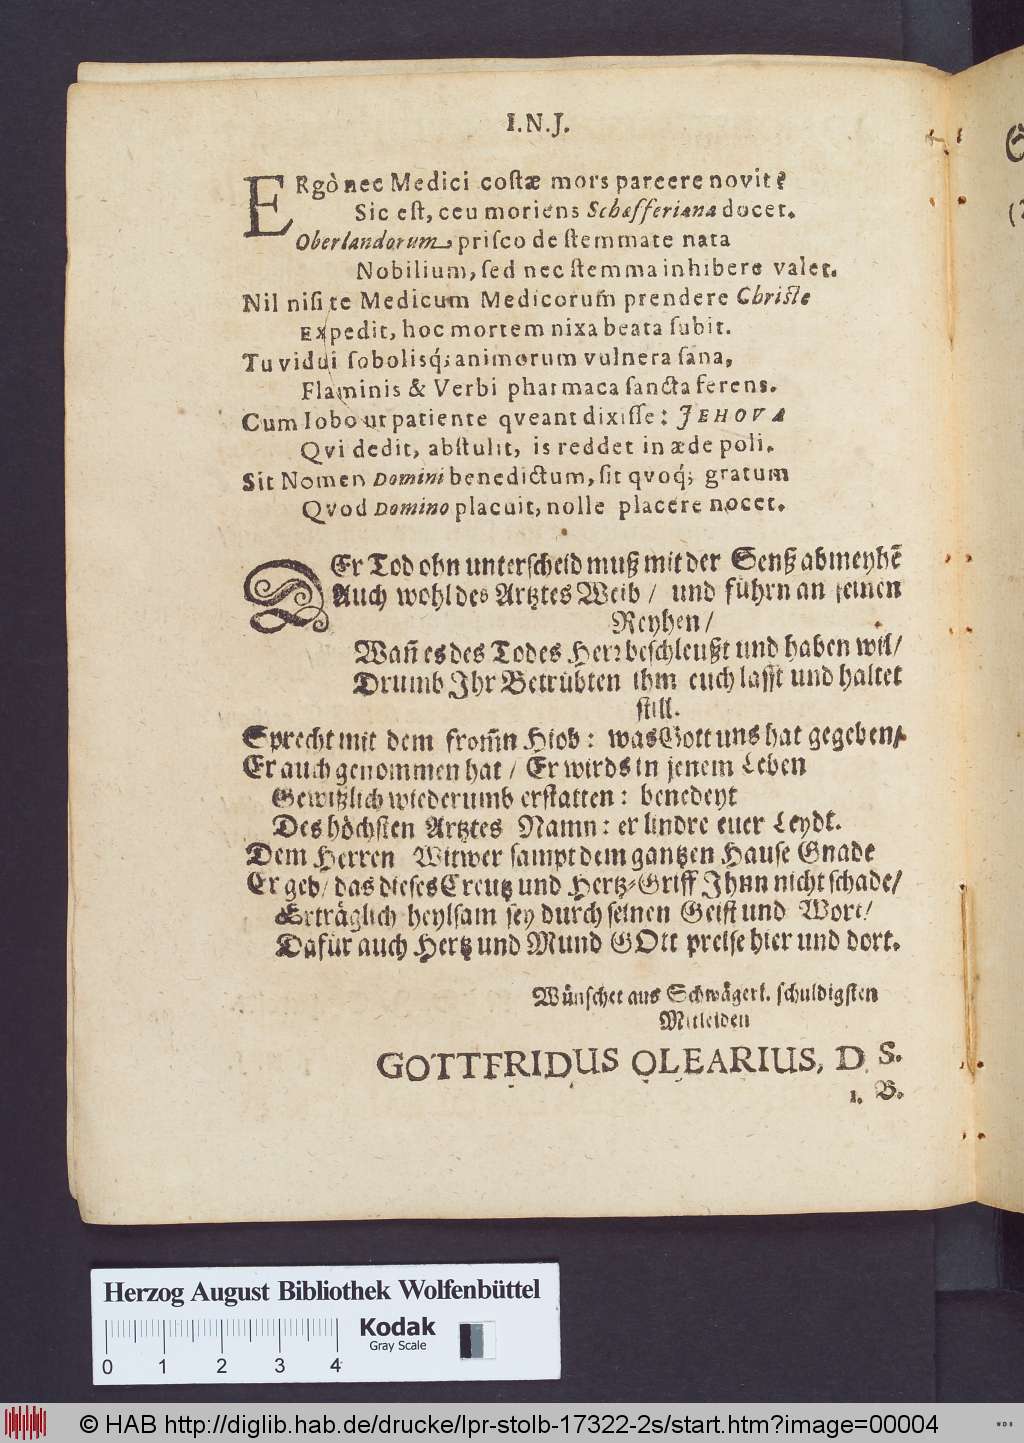 I.N.J.
ERgò nec Medici costæ mors parcere novit?
Sic est, ceu moriens Schæfferiana docet.
Oberlandorum prisco de stemmate nata
Nobilium, sed nec stemma inhibere valet.
Nil nisi te Medicum Medicorum̃ prendere Christe
Expedit, hoc mortem nixa beata subit.
Tu vidui sobolisq́; animorum vulnera sana,
Flaminis & Verbi pharmaca sancta ferens.
Cum Iobo ut patiente qveant dixisse: JEHOVA
Qvi dedit, abstulit, is reddet in æde poli.
Sit Nomen Domini benedictum, sit qvoq́; gratum
Qvod Domino placuit, nolle placere nocet.
DEr Tod ohn unterscheid muß mit der Senß abmeyhē
Auch wohl des Artztes Weib / und führn an seinen
Reyhen /
Wañ es des Todes Herr beschleußt und haben wil /
Drumb Ihr Betrübten ihm euch lasst und haltet
still.
Sprecht mit dem from̃n Hiob : was Gott uns hat gegeben /
Er auch genommen hat / Er wirds in jenem Leben
Gewißlich wiederumb erstatten : benedeyt
Des höchsten Artztes Namn : er lindre euer Leydt.
Dem Herren Witwer sampt dem gantzen Hause Gnade
Er geb / das dieses Creutz und Hertz-Griff Ihnn nicht schade /
Erträglich heylsam sey durch seinen Geist und Wort /
Dafür auch Hertz und Mund GOtt preise hier und dort.
Wünschet aus Schwägerl. schuldigsten
Mitleiden
GOTTFRIDUS OLEARIUS, D. S.
1. B.
Herzog August Bibliothek Wolfenbüttel
Kodak
Gray Scale
0 1 2 3 4
© HAB http://diglib.hab.de/drucke/lpr-stolb-17322-2s/start.htm?image=00004